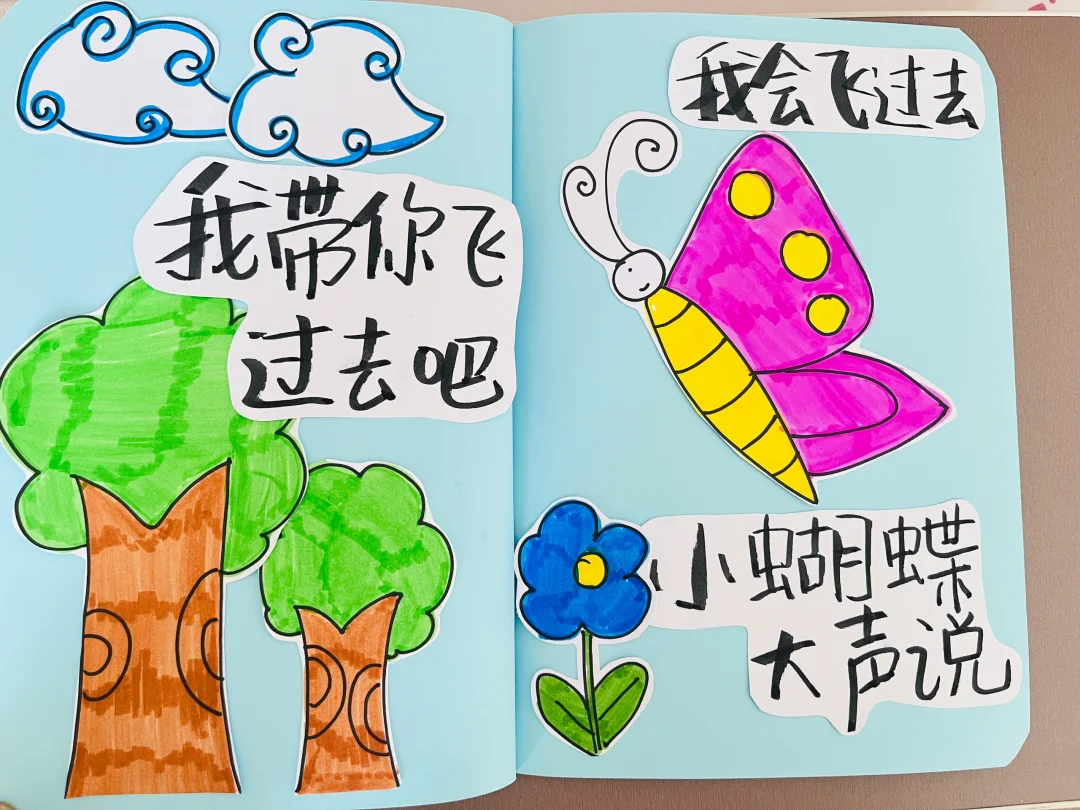 我带你飞
过去吧
我会飞过去
小蝴蝶
大声说